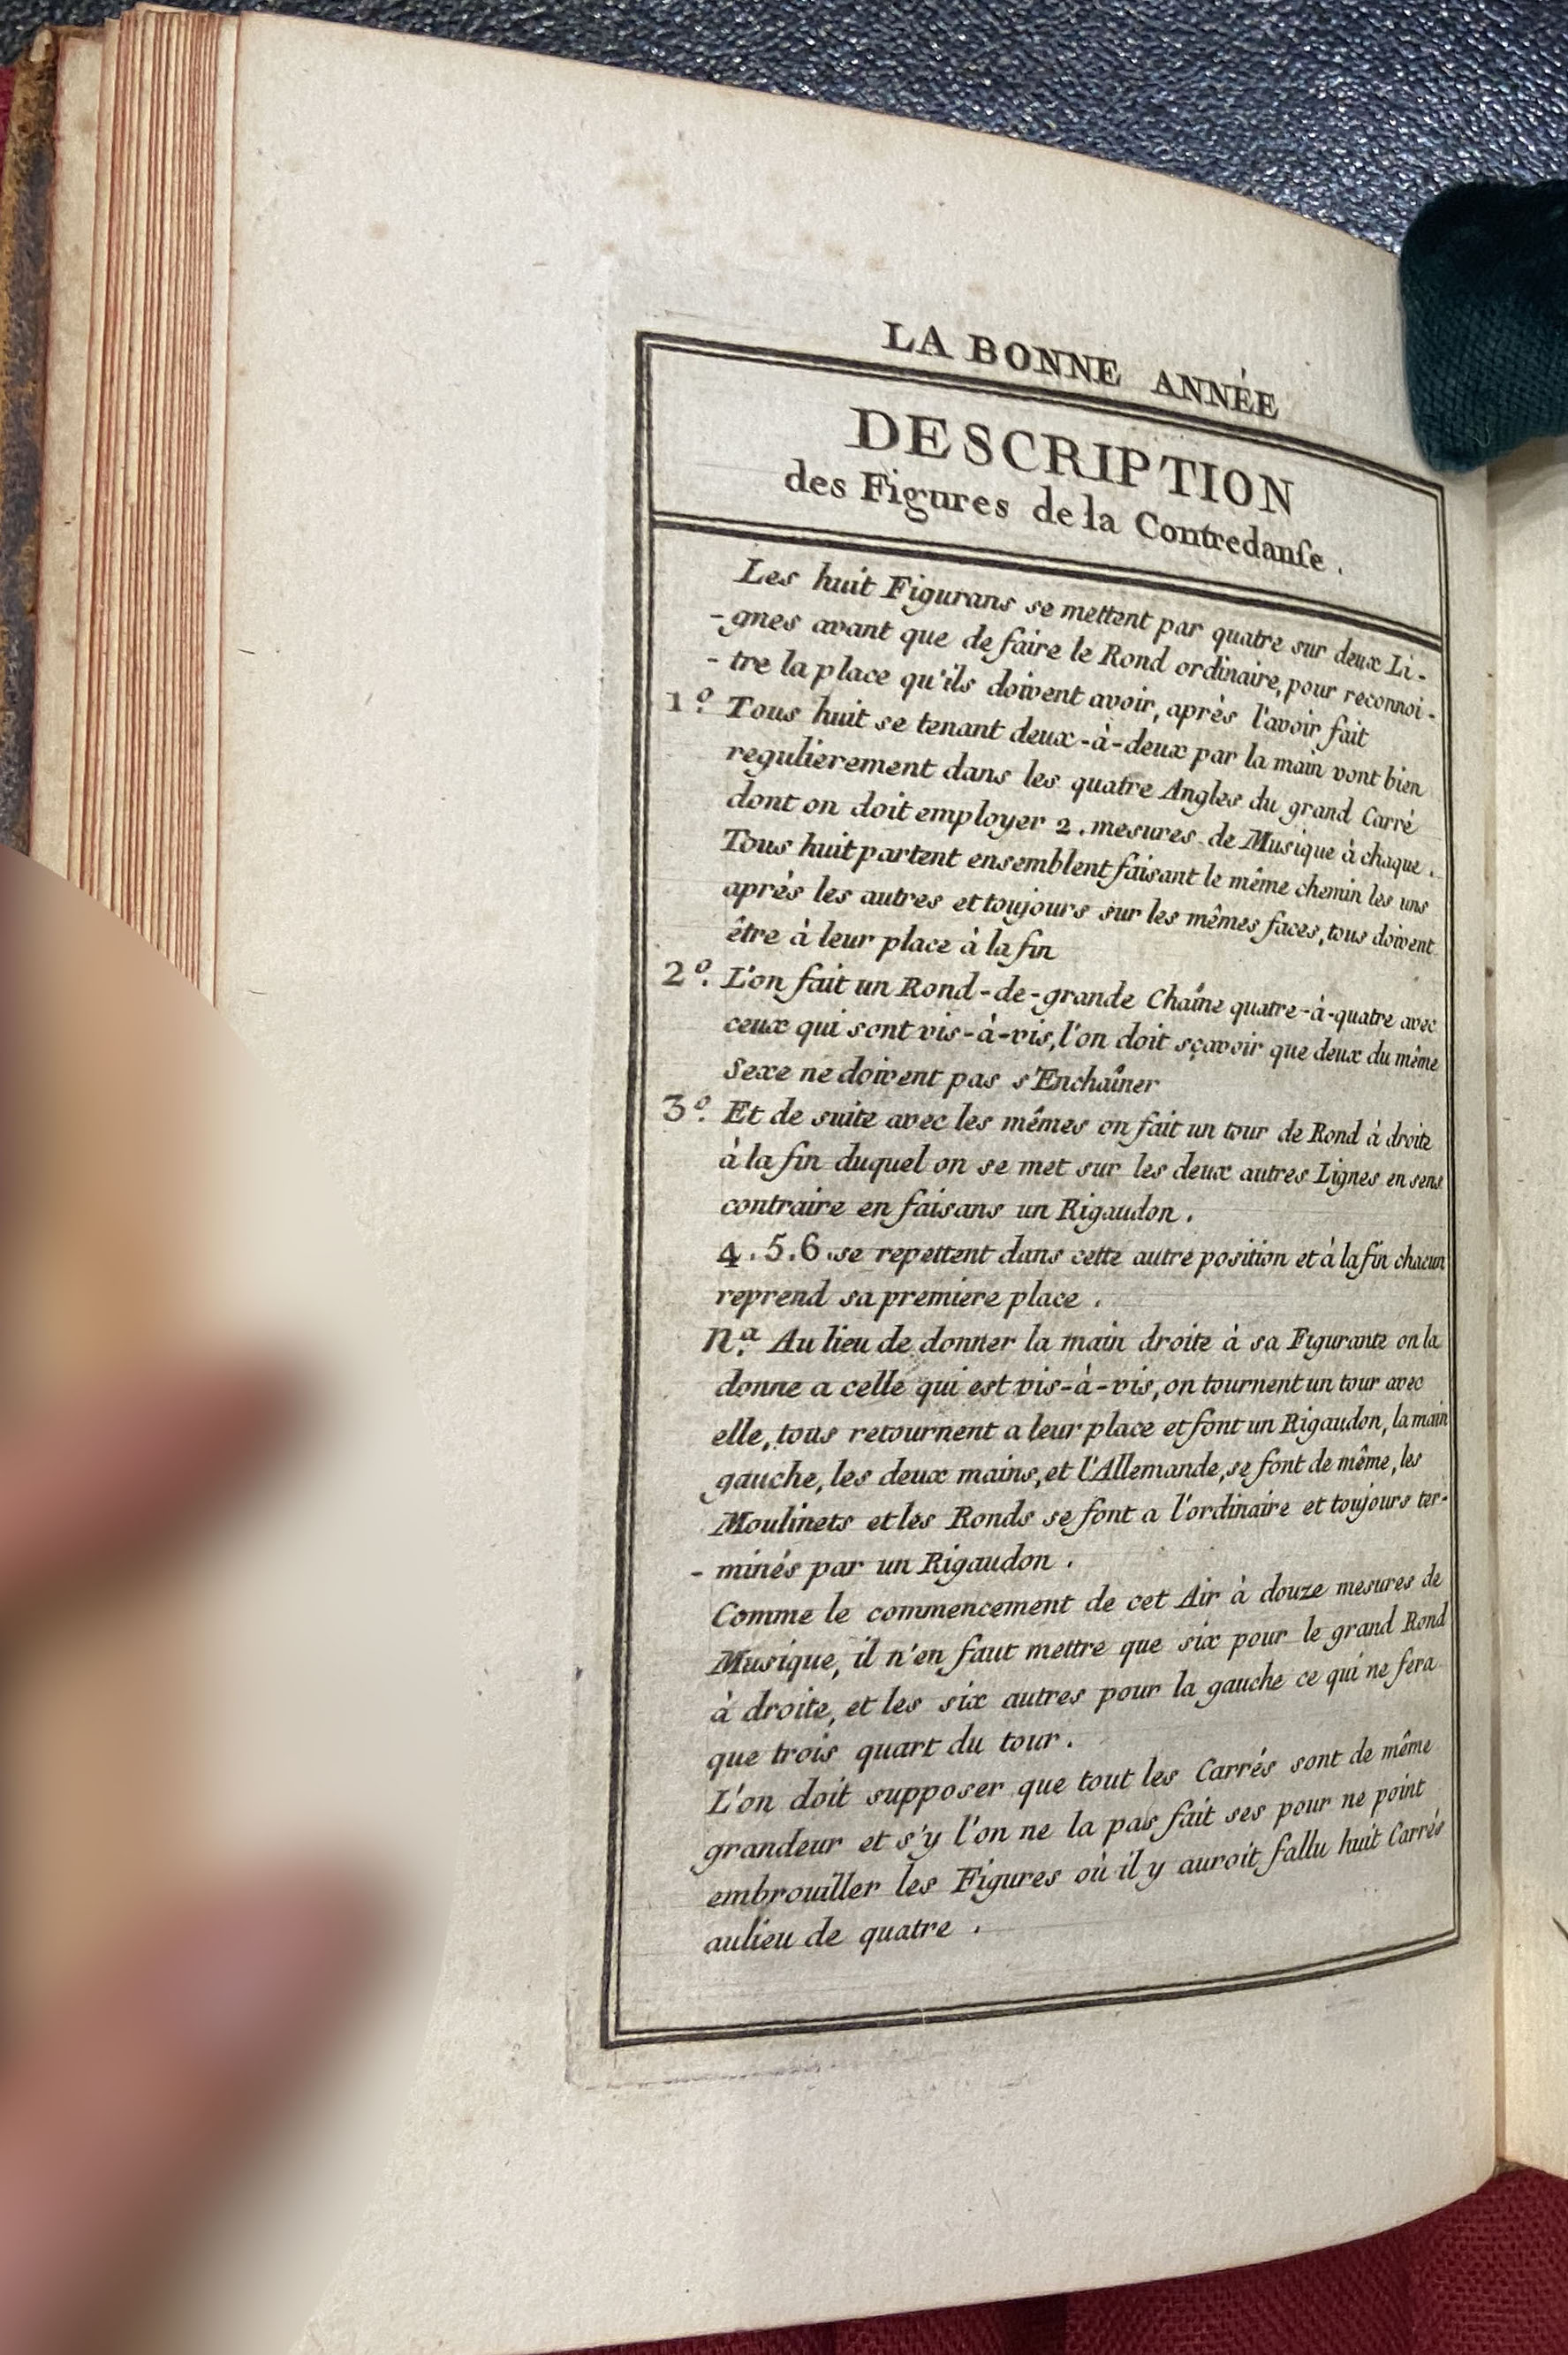 LA BONNE ANNÉE
DESCRIPTION
des Figures de la Contredanſe.
Les huit Figurans se mettent par quatre sur deux Li-
-gnes avant que de faire le Rond ordinaire, pour reconnoi-
-tre la place qu'ils doivent avoir, après l'avoir fait
1º. Tous huit se tenant deux-à-deux par la main vont bien
regulierement dans les quatre Angles du grand Carré
dont on doit employer 2. mesures de Musique à chaque.
Tous huit partent ensemblent faisant le même chemin les uns
après les autres et toujours sur les mêmes faces, tous doivent
être à leur place à la fin
2º. L'on fait un Rond-de-grande Chaîne quatre-à-quatre avec
ceux qui sont vis-à-vis, l'on doit sçavoir que deux du même
Sexe ne doivent pas s'Enchaîner
3º. Et de suite avec les mêmes on fait un tour de Rond à droite
à la fin duquel on se met sur les deux autres Lignes en sens
contraire en faisans un Rigaudon.
4.5.6. se repettent dans cette autre position et à la fin chacun
reprend sa premiere place.
Nª. Au lieu de donner la main droite à sa Figurante on la
donne a celle qui est vis-à-vis, on tournent un tour avec
elle, tous retournent a leur place et font un Rigaudon, la main
gauche, les deux mains, et l'Allemande, se font de même, les
Moulinets et les Ronds se font a l'ordinaire et toujours ter-
-minés par un Rigaudon.
Comme le commencement de cet Air à douze mesures de
Musique, il n'en faut mettre que six pour le grand Rond
à droite, et les six autres pour la gauche ce qui ne fera
que trois quart du tour.
L'on doit supposer que tout les Carrés sont de même
grandeur et s'y l'on ne la pas fait ses pour ne point
embrouiller les Figures où il y auroit fallu huit Carrés
aulieu de quatre.